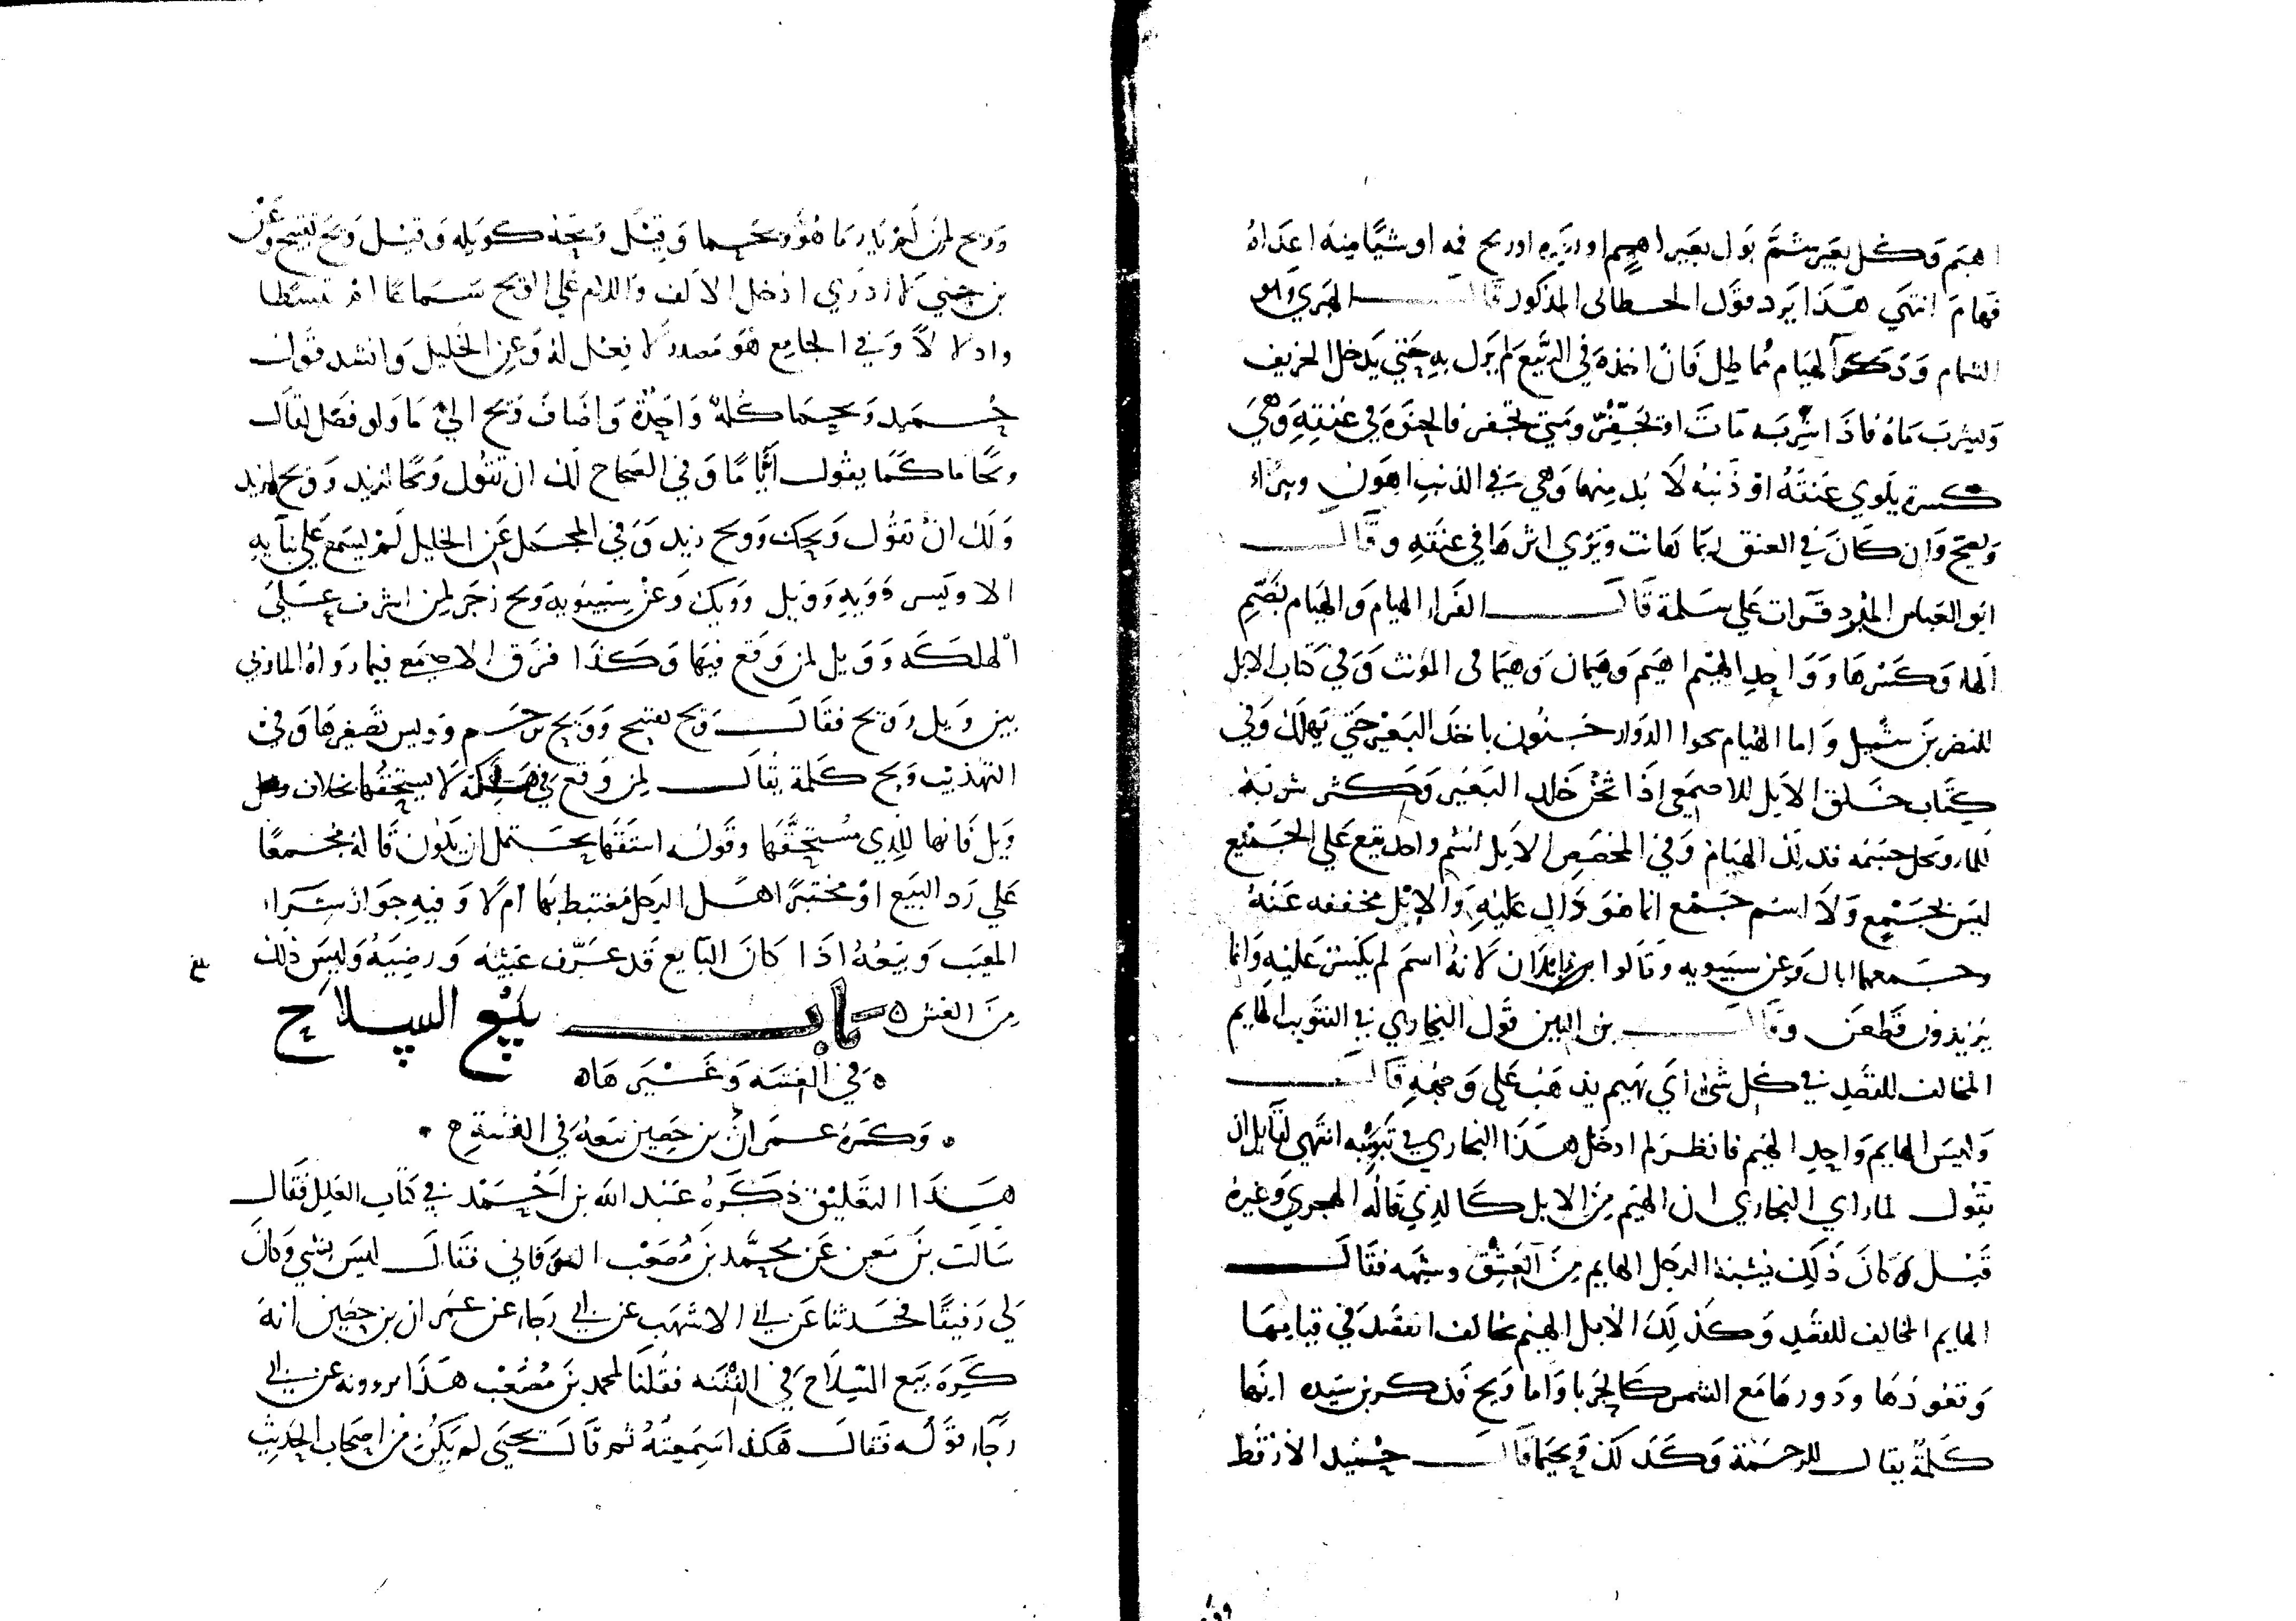 اهيم وكل بعير شم بول بعير اهيم او زبره او ريح فمه او شيا منه اعداه
فهام انتهى هذا يرد قول الخطابي المذكور قال الهجري وهو
الهيام وذكر الهيام مماطل فان اخذه في الربيع لم يزل به حتي يدخل الخريف
ويشرب ماه فاذا شربه مات او تجفر ومتي تجفر في عنقه وهي
كسرة يلوي عنقه او ذنبه لا بد منها وهي في الذنب اهون ويبراء
ويصح وان كان في العنق ربما لهانت ويري اثرها في عنقه وقال
ابو العباس المبرد قرات علي سلمة قال الفراء الهيام والهيام بضم
الهاء وكسرها وواحد الهيم اهيم وهيمان وهيما في المؤنث وفي كتاب الابل
للنضر بن شميل واما الهيام نحوا الدوار جنون ياخذ البعير حتي يهلك وفي
كتاب خلق الابل للاصمعي اذا سخن جلد البعير وكثر شربه
للماء ونحل جسمه فذلك الهيام وفي المخصص الابل اسم واحد يقع علي الجميع
ليس بجمع ولا اسم جمع انما هو دال عليه والابل مخففه عنه
وجمعها ابال وعن سيبويه وقالوا ابلان لانه اسم لم يكسر عليه وانما
يريدون قطعين وقال بن التين قول البخاري في التبويب الهايم
المخالف للقصد في كل شئ اي يهيم يذهب علي وجهه قال
وليس الهايم واحد الهيم فانظر لم ادخل هذا البخاري في تبويبه انتهي لقايل ان
يقول لما راي البخاري ان الهيم من الابل كالذي قاله الهجري وغيره
قبله كان ذلك يشبه الرجل الهايم من العشق وشبهه فقال
الهايم المخالف للقصد وكذلك الابل الهيم تخالف القصد في قيامها
وقعودها ودورها مع الشمس كالحربا واما ويح فذكر بن سيده انها
كلمة يقال للرحمة وكذلك ويحما قال حميد الارقط
وويح لمن لم يدر ما هو ويحما وقيل ويحه كويله وقيل ويح تقبيح وعن
بن جني لا ادري ادخل الالف واللام علي الويح سماعا ام تبسطا
وادلالا وفي الجامع هو مصدر لا فعل له وعن الخليل وانشد قول
حميد ويحما كله واحدة واضاف ويح الي ما ولو فصل لقال
ويحا ما كما يقول ايا ما وفي الصحاح لك ان تقول ويحا لزيد وويح لزيد
ولك ان تقول ويحك وويح زيد وفي المجمل عن الخليل لم يسمع علي بنايه
الا ويس وويه وويل وويك وعن سيبويه ويح زجر لمن اشرف علي
الهلكه وويل لمن وقع فيها وكذا فرق الاصمعي فيما رواه المازني
بين ويل وويح فقال ويح تقبيح وويح ترحم وويس تصغيرها وفي
التهذيب ويح كلمة يقال لمن وقع في هلكة لا يستحقها بخلاف
ويل فانها للذي مستحقها وقوله استقها يحتمل ان يكون قاله مجمعا
علي رد البيع او مختبرا اهل الرجل مغتبط بها ام لا وفيه جواز شراء
المعيب وبيعه اذا كان البايع قد عرف عيبه ورضيه وليس ذلك
من الغش ه باب بيع السلاح
ه في الفتنه وغيرها ه
• وكره عمران بن حصين بيعه في الفتنة •
هذا التعليق ذكره عبد الله بن احمد في كتاب العلل فقال
سالت بن معين عن محمد بن مصعب القرقاني فقال ليس بشي وكان
لي رفيقا فحدثنا عن ابي الاشهب عن ابي رجاء عن عمران بن حصين انه
كره بيع السلاح في الفتنه فقلنا لمحمد بن مصعب هذا يروونه عن ابي
رجاء قوله فقال هكذا سمعته ثم قال يحيي لم يكن من اصحاب الحديث